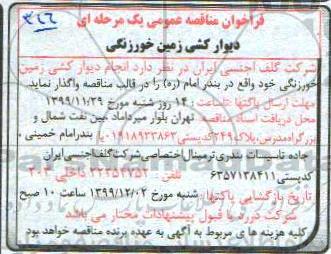 ۳۶۶
فراخوان مناقصه عمومی یک مرحله ای
دیوار کشی زمین خورزنگی
شرکت گلف اجنسی ایران در نظر دارد انجام دیوار کشی زمین
خورزنگی خود واقع در بندر امام (ره) را در قالب مناقصه واگذار نماید
مهلت ارسال پاکتها :تاساعت : ۱۴ روز شنبه مورخ ۱۳۹۹/۱۱/۲۹
محل دریافت اسناد مناقصه تهران بلوار میرداماد ،بین نفت شمالی و
بزرگراه مدرس،پلاک۲۴۹کدپستی۱۹۱۸۹۳۳۸۶۳-یا بندرامام خمینی ،
جاده تاسیسات بندری ترمینال اختصاصی شرکت گلف اجنسی ایران
کدپستی ۶۳۵۷۱۳۸۴۱۱ تلفن : داخلی ۲۰۲
تاریخ بازگشایی پاکتها: شنبه مورخ ۱۳۹۹/۱۲/۰۲ ساعت ۱۰ صبح
شرکت دررد یا قبول پیشنهادات مختار می باشد
کلیه هزینه ها ی مربوط به آگهی به عهده برنده مناقصه خواهد بود